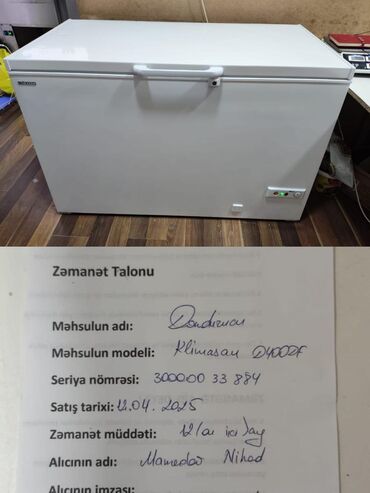 Zəmanət Talonu
Məhsulun adı: Dondurucu
Məhsulun modeli: Klimasan D400DF
Seriya nömrəsi: 300000 33 884
Satış tarixi: 12.04.2025
Zəmanət müddəti: 12/ay
Alıcının adı: Mamedov Nihad
Alıcının imzası: